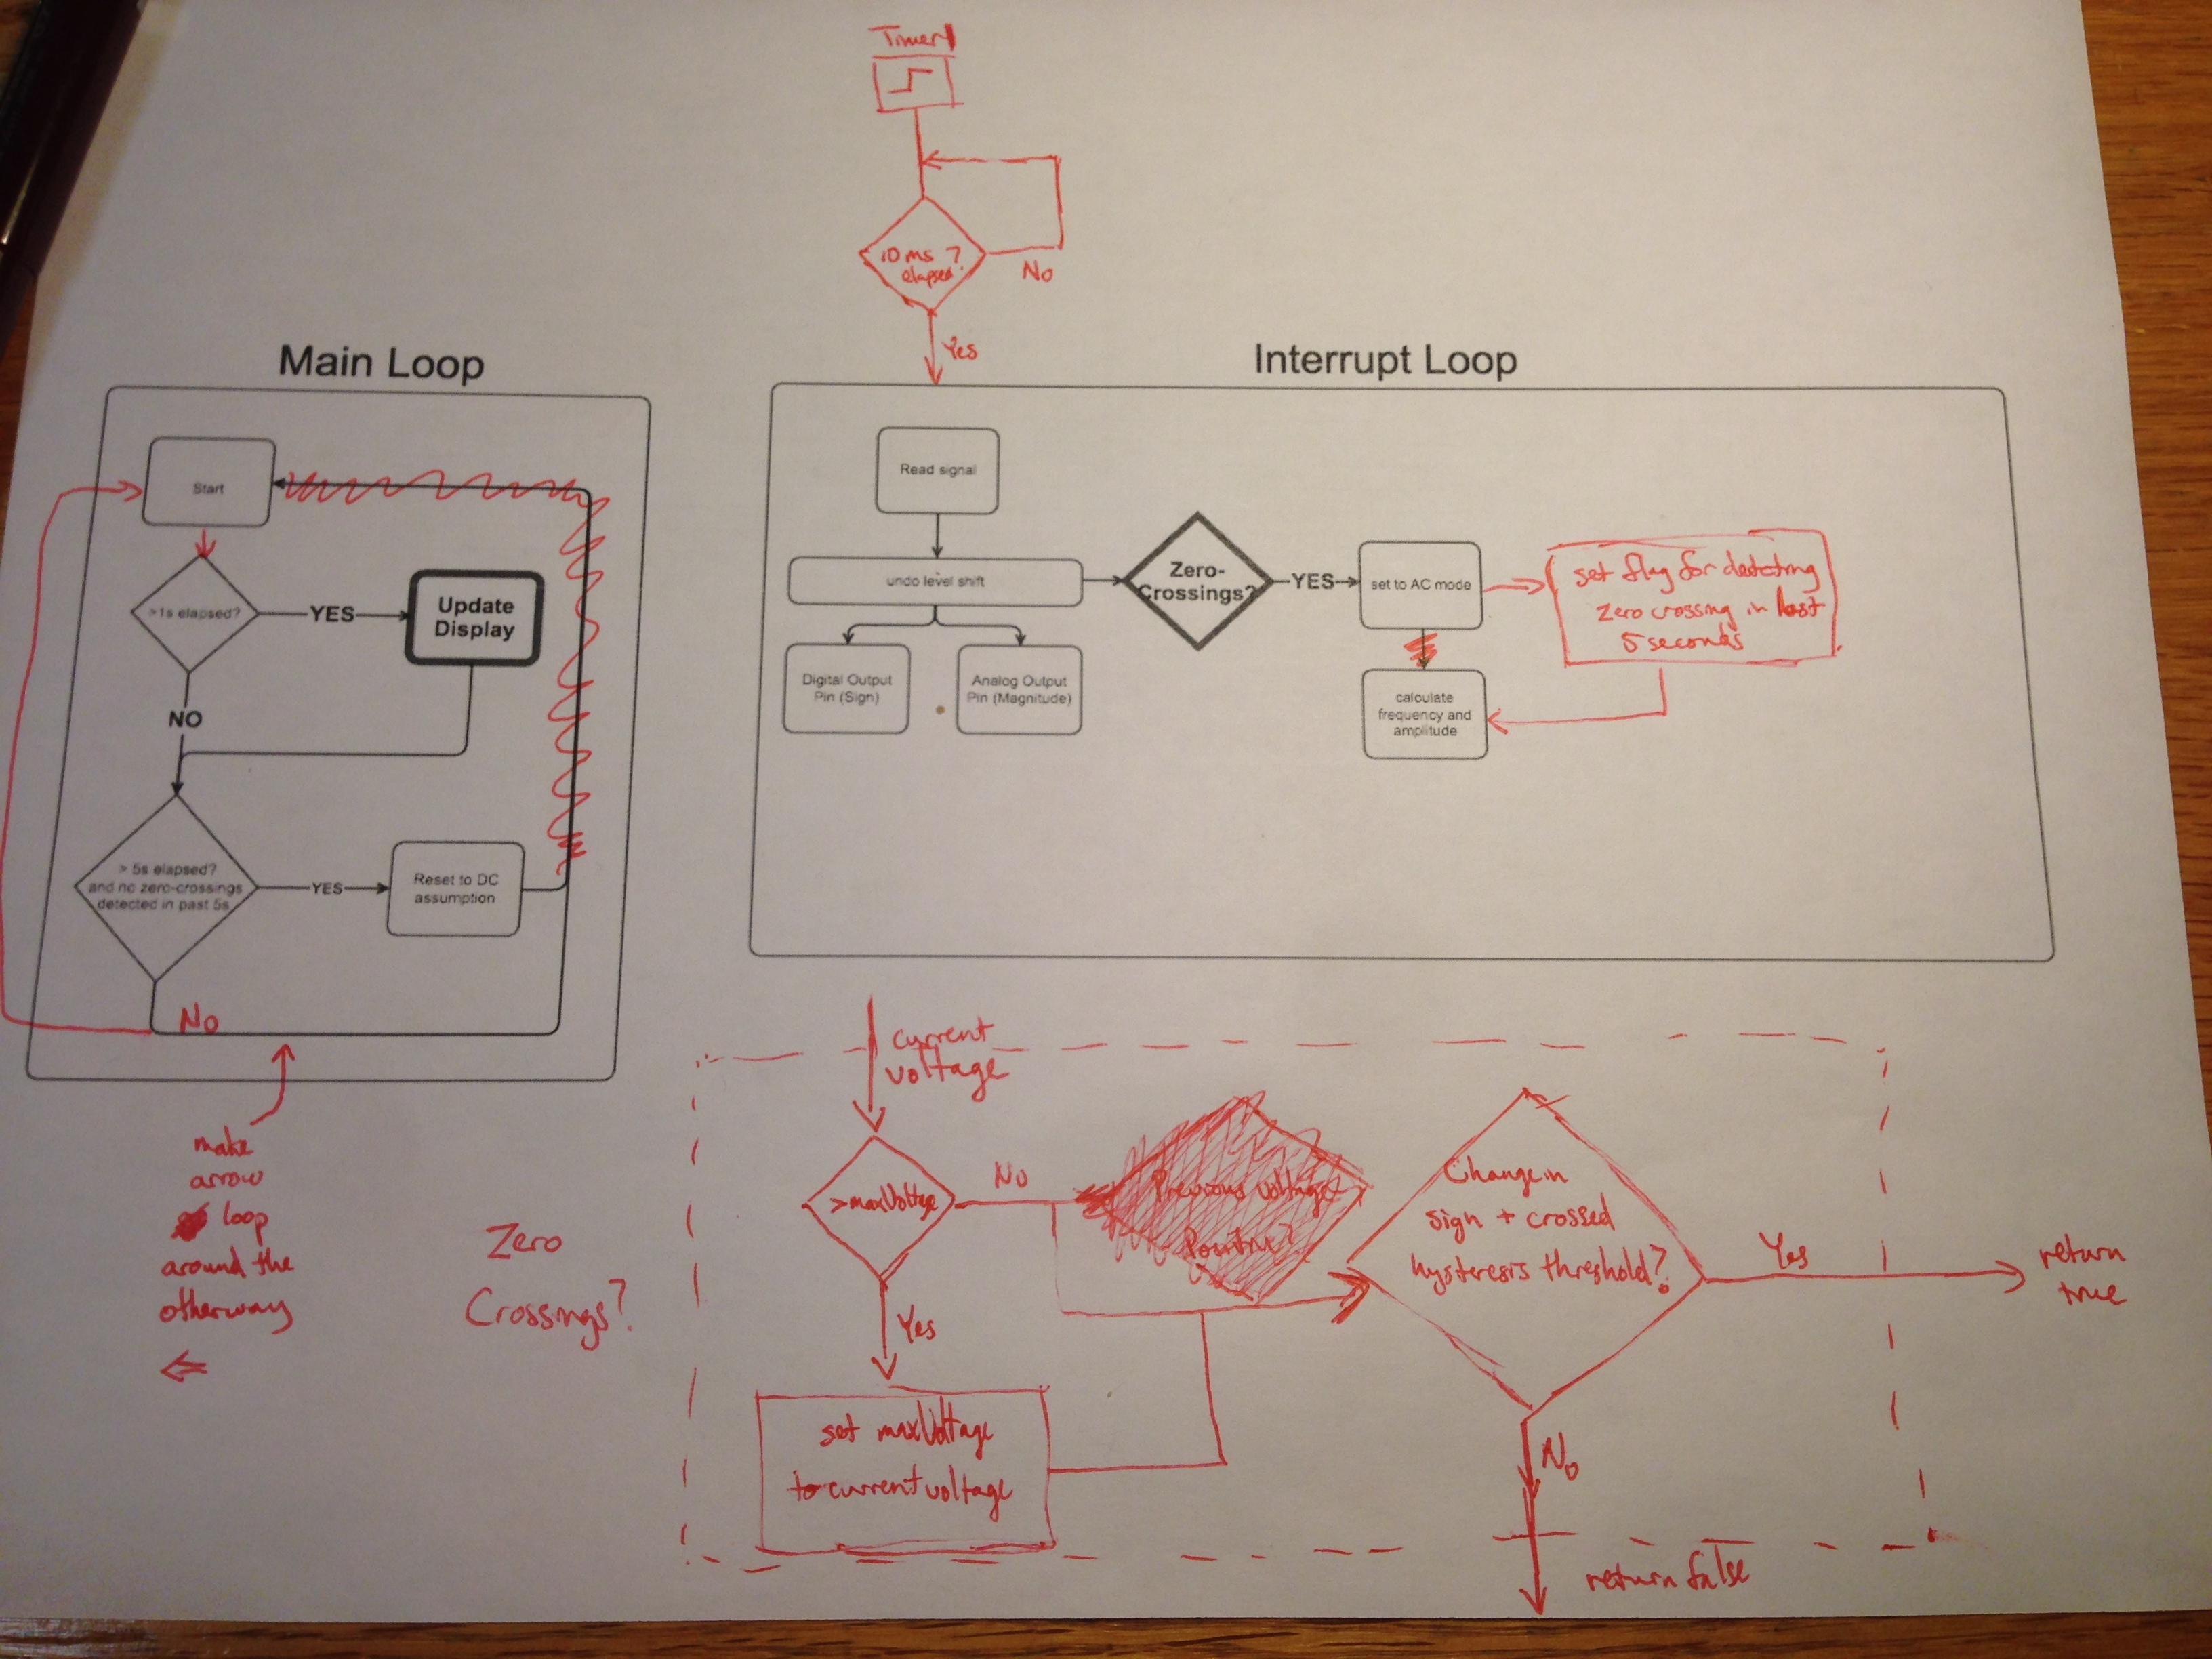 Timer1
10 ms ?
elapsed?
No
Yes
Main Loop
Start
>1s elapsed?
YES
Update
Display
NO
> 5s elapsed?
and no zero-crossings
detected in past 5s
YES
Reset to DC
assumption
No
make
arrow
loop
around the
otherway
Interrupt Loop
Read signal
undo level shift
Digital Output
Pin (Sign)
Analog Output
Pin (Magnitude)
Zero-
Crossings?
YES
set to AC mode
set flag for detecting
zero crossing in last
5 seconds
calculate
frequency and
amplitude
Zero
Crossings?
current
voltage
>maxVoltage
No
Yes
set maxVoltage
to current voltage
Previous voltage
Positive?
Change in
sign + crossed
hysteresis threshold?
Yes
return
true
No
return false